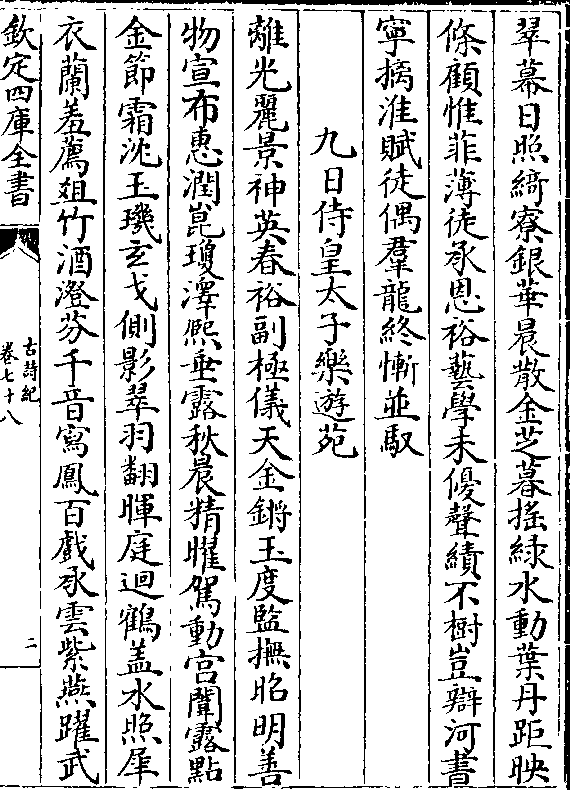 翠幕日照綺寮銀華晨散金芝暮搖綠水動葉丹距映
條顧惟菲薄徒承恩裕藝學未優聲績不樹豈辯河書
寧摛淮賦徒偶羣龍終慚並馭
九日侍皇太子樂遊苑
離光麗景神英春裕副極儀天金鏘玉度監撫昭明善
物宣布惠潤崑瓊澤熙垂露秋晨精曜駕動宫闈露點
金節霜沈玉璣玄戈側影翠羽翻暉庭迴鶴盖水照犀
衣蘭羞薦俎竹酒澄芬千音寫鳳百戲承雲紫燕躍武
欽定四庫全書
古詩紀
卷七十八
二